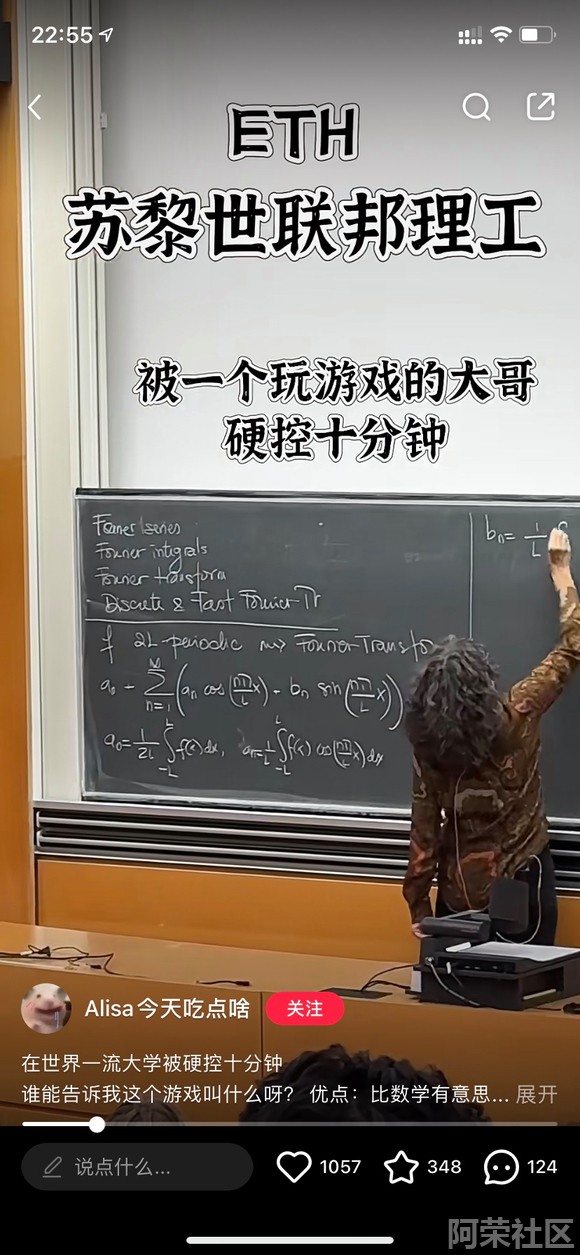 22:55
ETH
苏黎世联邦理工
被一个玩游戏的大哥
硬控十分钟
Fourier series
Fourier integrals
Fourier transform
Discrete & Fast Fourier-Tr
f 2L-periodic ⇝ Fourier Transfo
a₀ + ∑_{n=1}^{N} (aₙ cos(nπ/L x) + bₙ sin(nπ/L x))
a₀ = 1/2L ∫_{-L}^{L} f(x)dx, aₙ = 1/L ∫_{-L}^{L} f(x) cos(nπ/L x)dx
bₙ = 1/L
Alisa今天吃点啥
关注
在世界一流大学被硬控十分钟
谁能告诉我这个游戏叫什么呀？ 优点：比数学有意思... 展开
说点什么...
1057
348
124
阿荣社区